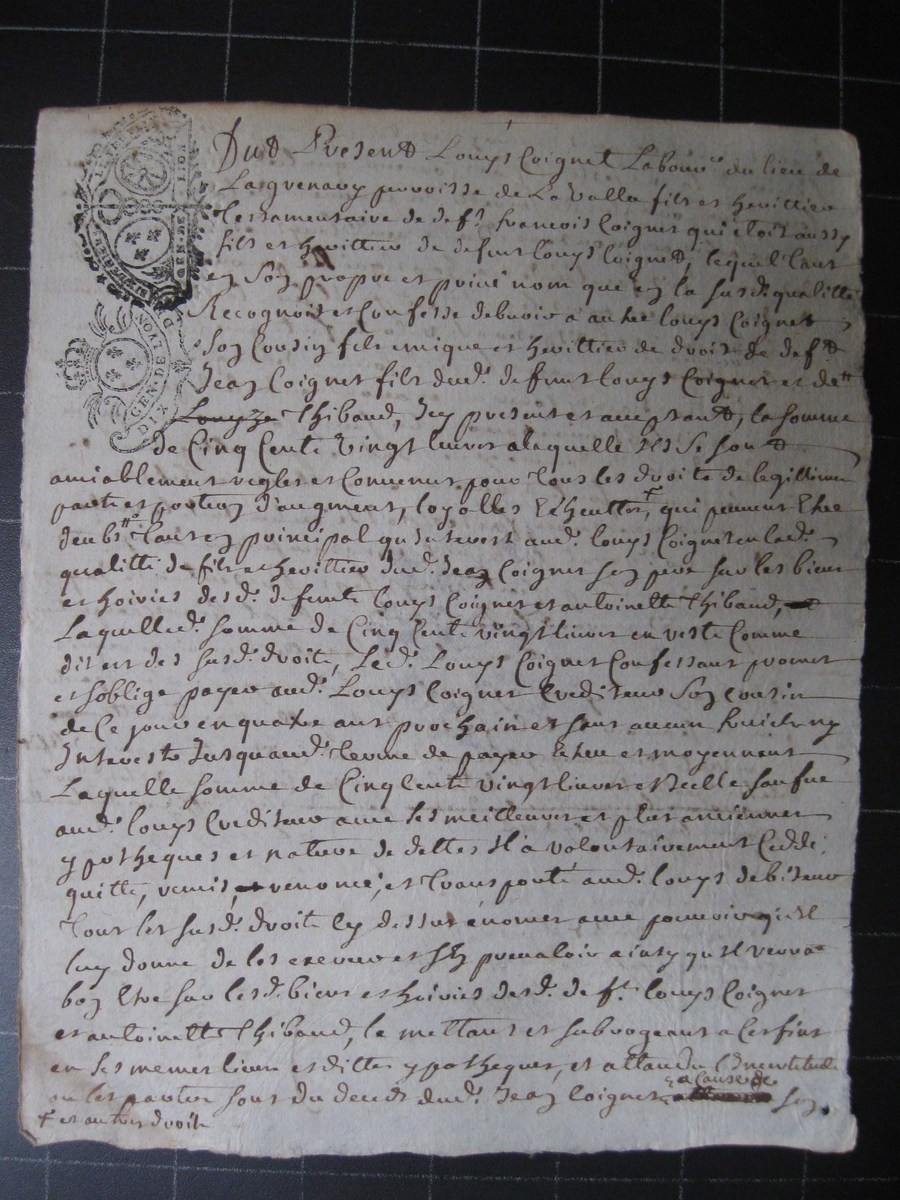 Dud Present Louys Coignet Labour.r du lieu de
Lasguenavy parroisse de La Valla fils et herittier
testamentaire de def.t francois Coignet qui etoit aussy
fils et herittier de defunt Louys Coignet, lequel tant
en son propre et privé nom que en la susd.e qualitté
Recognoit et Confesse debvoir a autre Louys Coignet
son Cousin fils unique et herittier de droit de def.t
Jean Coignet fils dud. defunt Louys Coignet et de
Thibaud, Icy present et acceptant, la somme
de Cinq Cents vingt livres a laquelle ils se sont
amiablement regles et Convenus pour tous les droits de legittime
part et portion d'augment, loyalles Eschutte+, qui peuvent Etre
deub.s tant en principal qu'interest aud. Louys Coignet en lad.
qualitté de fils et herittier dud. Jean Coignet son pere sur les biens
et hoiries desd. defunts Louys Coignet et antoinette Thibaud,
Laquelle d. somme de Cinq Cents vingt livres en reste Comme
dit est des susd. droits, Led. Louys Coignet Confessant promet
et soblige payer aud. Louys Coignet Crediteur son cousin
de Ce jour en quatre ans prochain et sans aucun
Interests Jusquaud. terme de payer et moyennant
Laquelle somme de Cinq Cents vingt livres et Icelle sauf
aud. Louys Crediteur avec ses meilleures et plus anciennes
ypotheques et nature de debtes Il a volontairement Ceddé,
quitté, remis, renoncé, et transporté aud. Louys debiteur
tous les susd. droits Cy dessus enomes avec pouvoir qu'il
luy donne de les exercer et s'en prevaloir ainsy qu'il verra
bon Etre sur lesd. biens et hoiries desd. def.ts Louys Coignet
et antoinette Thibaud, le mettant et subrogeant a Ces fins
en ses memes lieu et dittes ypotheques, et attandu
les parties sont du deceds dud. Jean Coignet a Cause de son
+ et autres droits